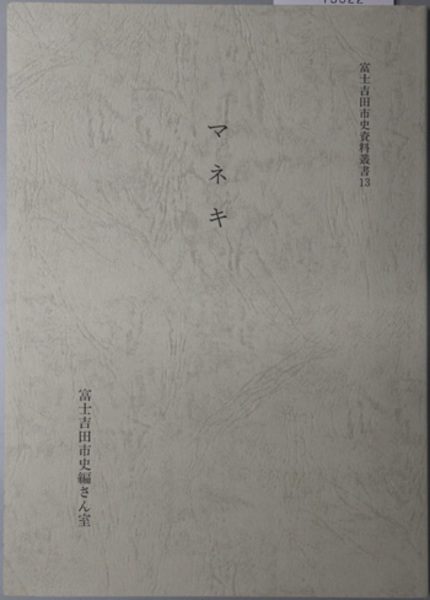 富士吉田市史資料叢書13
マネキ
富士吉田市史編さん室